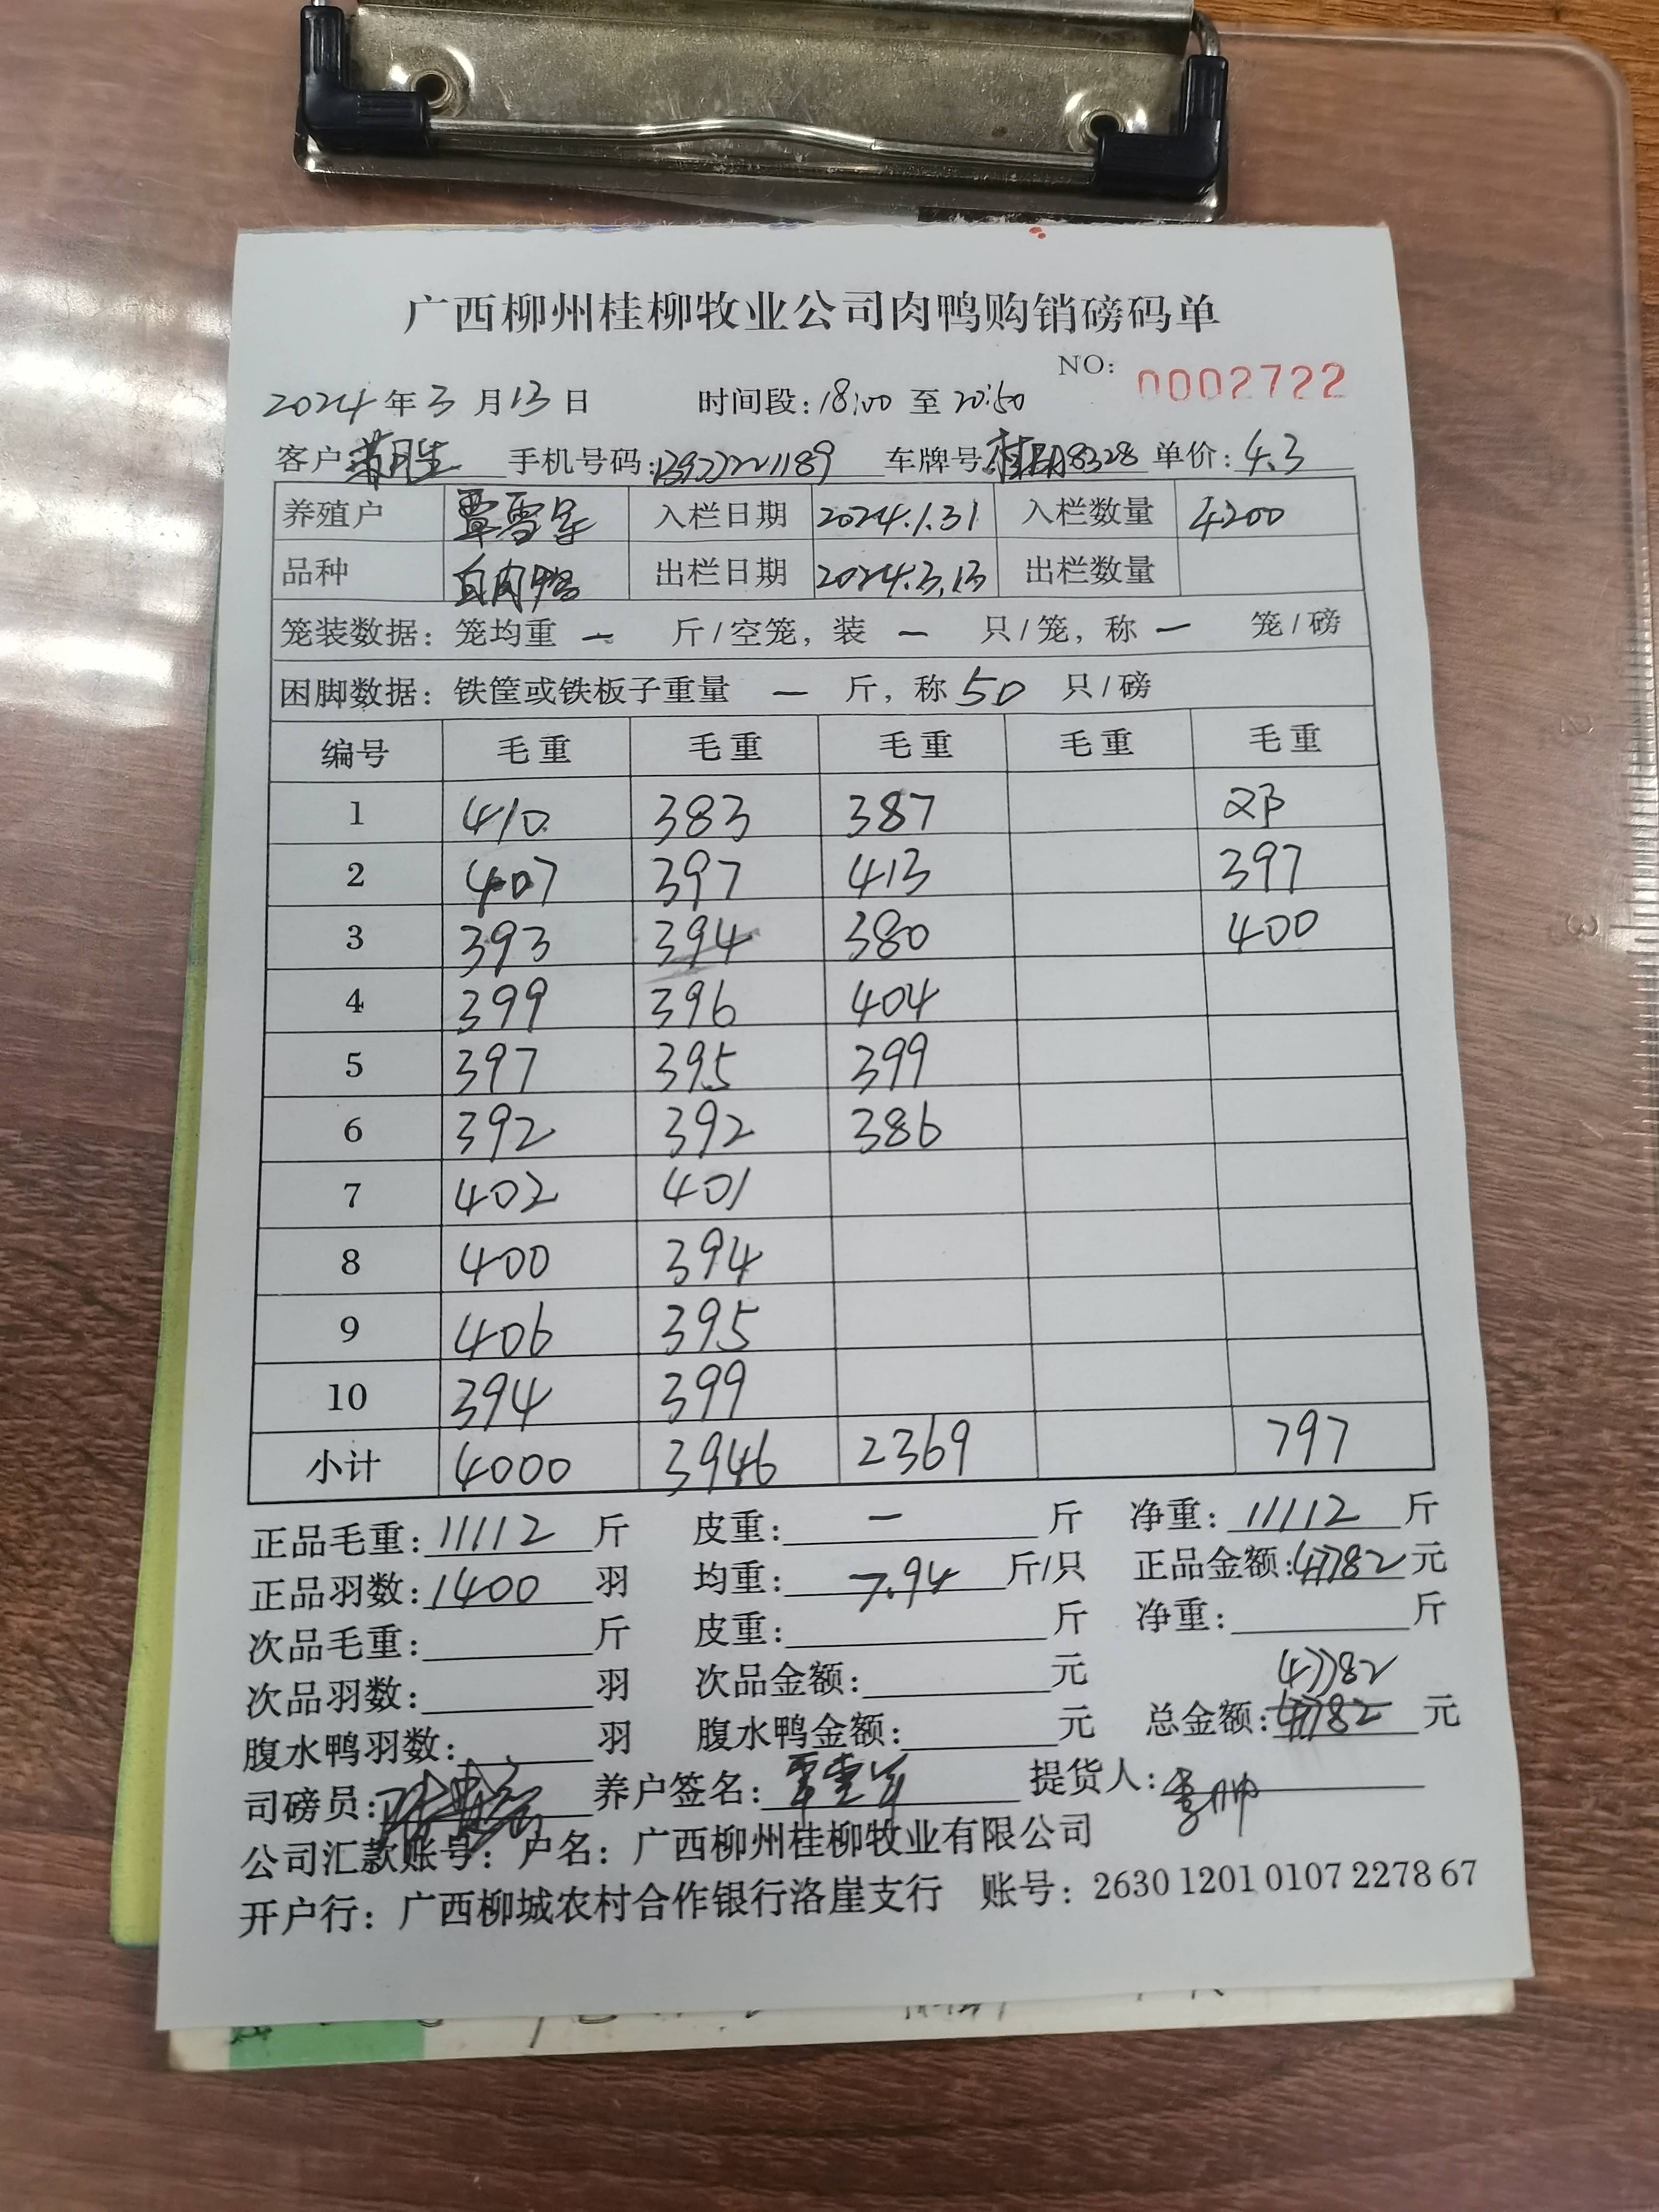 广西柳州桂柳牧业公司肉鸭购销磅码单
NO: 0002722
2024年3月13日 时间段:18:00至20:50
客户 手机号码: 车牌号 8328 单价:4.3
养殖户 覃雪军 入栏日期 2024.1.31 入栏数量 4200
品种 白肉鸭 出栏日期 2024.3.13 出栏数量
笼装数据:笼均重 — 斤/空笼,装 — 只/笼,称 — 笼/磅
困脚数据:铁筐或铁板子重量 — 斤,称 50 只/磅
编号 毛重 毛重 毛重 毛重 毛重
1 410 383 387
2 407 397 413 397
3 393 394 380 400
4 399 396 404
5 397 395 399
6 392 392 386
7 402 401
8 400 394
9 406 395
10 394 399
小计 4000 3946 2369 797
正品毛重:11112斤 皮重:—斤 净重:11112斤
正品羽数:1400羽 均重:7.94斤/只 正品金额:47782元
次品毛重:斤 皮重:斤 净重:斤
次品羽数:羽 次品金额:元 47782
腹水鸭羽数:羽 腹水鸭金额:元 总金额:47782元
司磅员: 养户签名:覃雪军 提货人:
公司汇款账号:户名:广西柳州桂柳牧业有限公司
开户行:广西柳城农村合作银行洛崖支行 账号:2630 1201 0107 2278 67